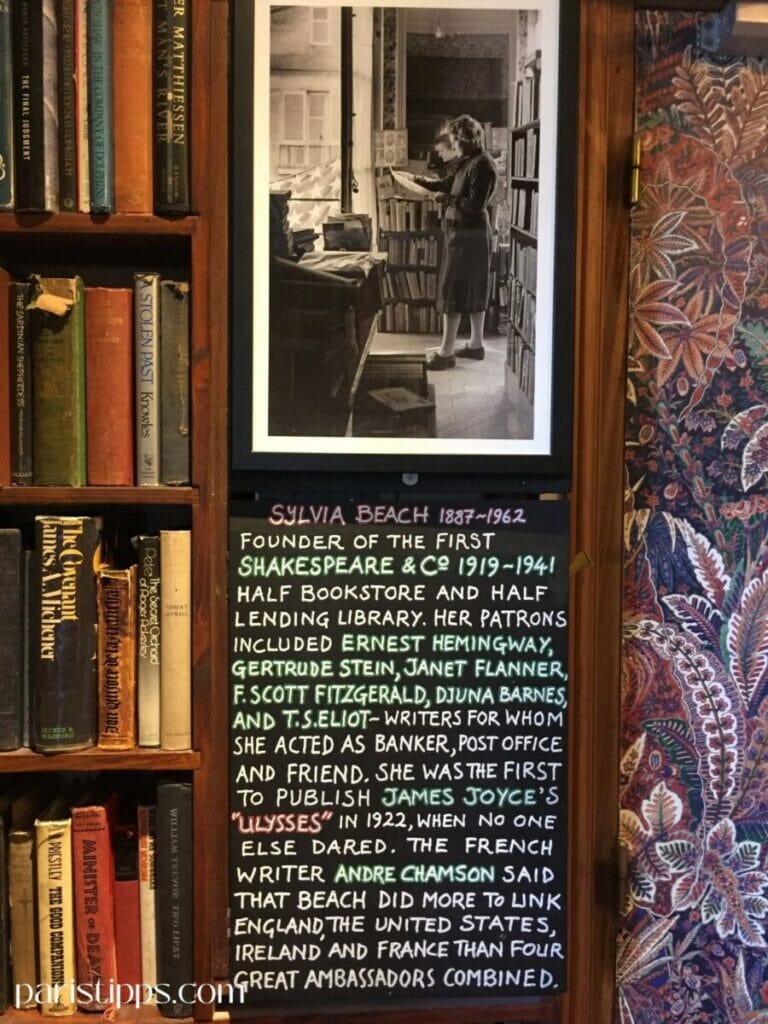 THE FINAL JUDGMENT
IN THE COMPANY OF DOLPHINS
ER MATTHIESSEN
MAN'S RIVER
RANDOM
THE SARDINIAN SHEPHERDESS
A STOLEN PAST
Knowles
The Covenant
James A. Michener
SECKER &
WARBURG
The Secret Orchard
of Roger Ackerley
PRIESTLEY
THE GOOD COMPANIONS
MINISTER OF DEATH
WILLIAM TREVOR TWO LIVES
SYLVIA BEACH 1887~1962
FOUNDER OF THE FIRST
SHAKESPEARE & Cº 1919~1941
HALF BOOKSTORE AND HALF
LENDING LIBRARY. HER PATRONS
INCLUDED ERNEST HEMINGWAY,
GERTRUDE STEIN, JANET FLANNER,
F. SCOTT FITZGERALD, DJUNA BARNES,
AND T.S. ELIOT~WRITERS FOR WHOM
SHE ACTED AS BANKER, POST OFFICE
AND FRIEND. SHE WAS THE FIRST
TO PUBLISH JAMES JOYCE'S
"ULYSSES" IN 1922, WHEN NO ONE
ELSE DARED. THE FRENCH
WRITER ANDRE CHAMSON SAID
THAT BEACH DID MORE TO LINK
ENGLAND, THE UNITED STATES,
IRELAND AND FRANCE THAN FOUR
GREAT AMBASSADORS COMBINED.
paristipps.com